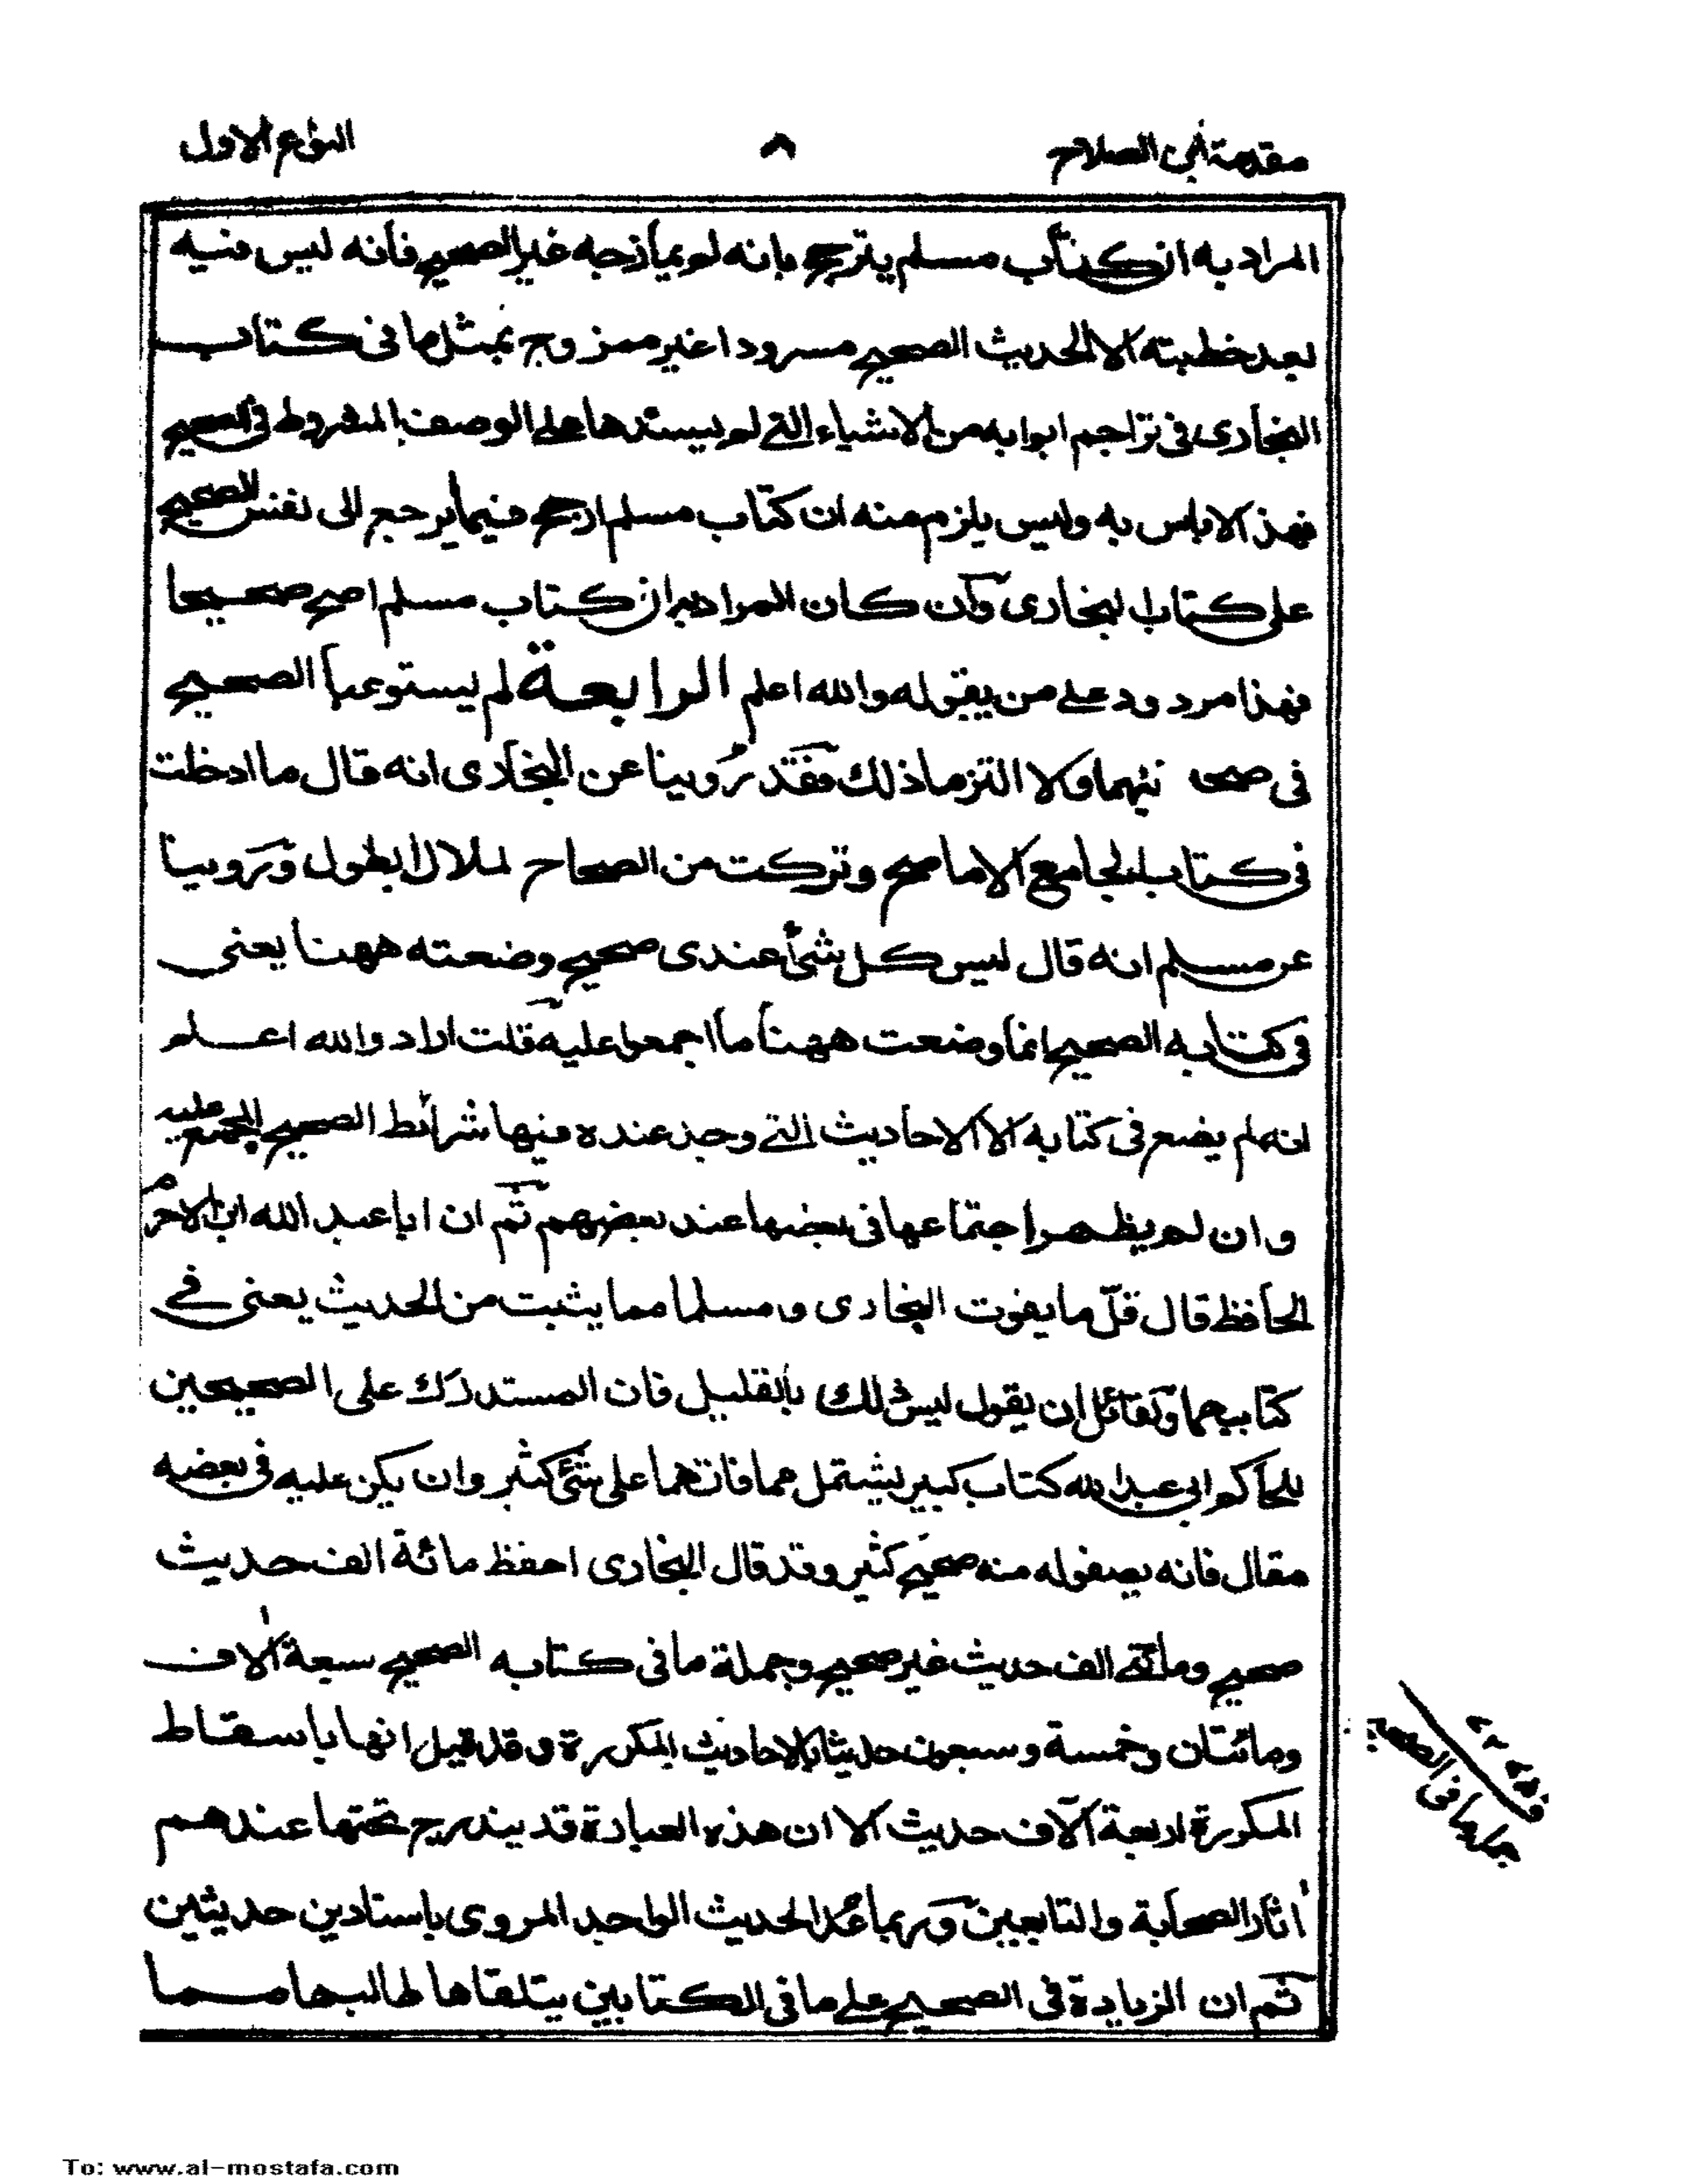 مقدمة ابن الصلاح ٨ النوع الاول
المراد به ان كتاب مسلم يترجح بانه لم يمازجه غير الصحيح فانه ليس فيه
بعد خطبته الا الحديث الصحيح مسرودا غير ممزوج بمثل ما في كتاب
البخاري في تراجم ابوابه من الاشياء التي لم يسندها على الوصف المشروط في الصحيح
فهذا لا باس به وليس يلزم منه ان كتاب مسلم ارجح فيما يرجع الى نفس الصحيح
على كتاب البخاري وان كان المراد به ان كتاب مسلم اصح صحيحا
فهذا مردود على من يقوله والله اعلم الرابعة لم يستوعبا الصحيح
في صحى حيهما ولا التزما ذلك فقد رُوينا عن البخاري انه قال ما ادخلت
في كتاب الجامع الا ما صح وتركت من الصحاح لملال الطول ورَوينا
عن مسلم انه قال ليس كل شئ عندى صحيح وضعته ههنا يعنى
في كتابه الصحيح انما وضعت ههنا ما اجمعوا عليه قلت اراد والله اعلم
انه لم يضع في كتابه الا الاحاديث التي وجد عنده فيها شرائط الصحيح المجمع عليه
وان لم يظهر اجتماعها في بعضها عند بعضهم ثم ان ابا عبد الله ابن الاخرم
الحافظ قال قلّ ما يفوت البخاري ومسلما مما يثبت من الحديث يعنى في
كتابيهما ولقائل ان يقول ليس ذلك بالقليل فان المستدرك على الصحيحين
للحاكم ابي عبد الله كتاب كبير يشتمل مما فاتهما على شئ كثير وان يكن عليه في بعضه
مقال فانه يصفو له منه صحيح كثير وقد قال البخاري احفظ مائة الف حديث
صحيح ومائتي الف حديث غير صحيح وجملة ما في كتابه الصحيح سبعة آلاف
ومائتان وخمسة وسبعون حديثا بالاحاديث المكررة وقد قيل انها باسقاط
المكررة اربعة آلاف حديث الا ان هذه العبارة قد يندرج تحتها عندهم
آثار الصحابة والتابعين وربما عُدّ الحديث الواحد المروى باسنادين حديثين
ثم ان الزيادة في الصحيح على ما في الكتابين يتلقاها طالبها مما
جملة ما في الصحيح
To: www.al-mostafa.com